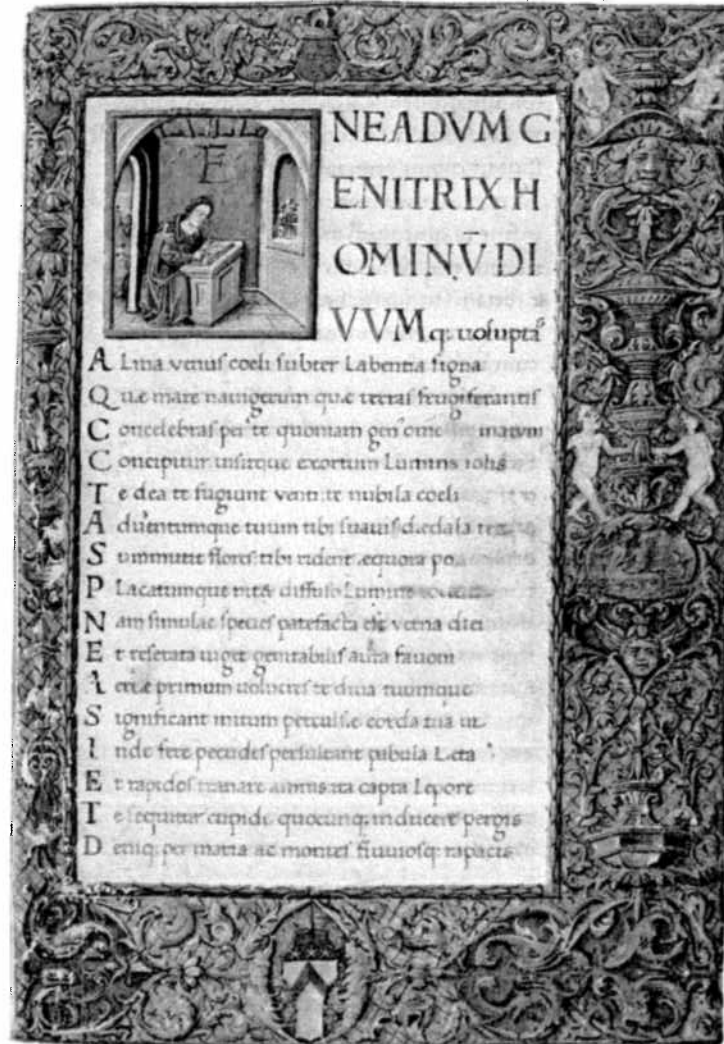 E
NEADVM G
ENITRIX H
OMINV̄ DI
VVM q; uolupta⁹
A Lma venus coeli subter Labentia signa
Q uæ mare nauigerum quæ terras frugiferantis
C oncelebras per te quoniam gen⁹ omne animantum
C oncipitur uisitque exortum Lumina solis
T e dea te fugiunt venti te nubila coeli
A duentumque tuum tibi suauis dædala
S ummittit flores tibi rident æquora po
P Lacatumque nitet diffuso Lumine
N am simulac species patefacta est verna diei
E t reserata uiget genitabilis aura favoni
A eriæ primum uolucres te diua tuumque
S ignificant initum perculsæ corda tua ui
I nde feræ pecudes persultant pabula Læta
E t rapidos tranant amnis ita capta Lepore
T e sequitur cupide quocunq; inducere pergis
D eniq; per maria ac montes fluuiosq; rapacis